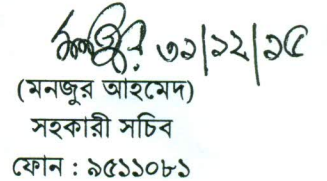 মনজুর ৩১/১২/১৫
(মনজুর আহমেদ)
সহকারী সচিব
ফোন : ৯৫১১০৮১